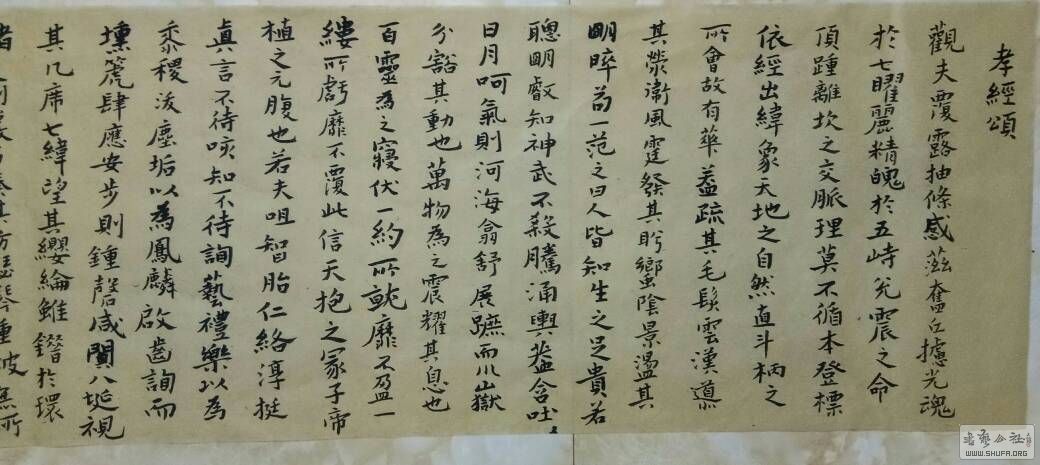 孝經頌
觀夫覆露抽條感蒸奮丘攄光魂
於七曜麗精魄於五峙兊震之命
頂踵離坎之交脈理莫不循本登標
依經出緯象天地之自然直斗柄之
所會故有華蓋疏其毛髮雲漢道
其滎衛風霆發其肸蠁陰景盪其
明晬茍一范之曰人皆知生之足貴若
聰明叡知神武不殺騰涌輿蓋含吐
日月呵氣則河海翕舒展蹠而川嶽
分豁其動也萬物為之震耀其息也
百靈為之寢伏一約所就靡不盈一
縷所虧靡不覆此信天抱之冢子帝
植之元腹也若夫咀智胎仁絡淳挺
真言不待咳知不待詢藝禮樂以為
黍稷浚塵垢以為鳳麟啟齒詢而
壎箎肆應安步則鍾磬咸閴八埏視
其几席七緯望其纓綸雖鐕於環
書法公社
WWW.SHUFA.ORG